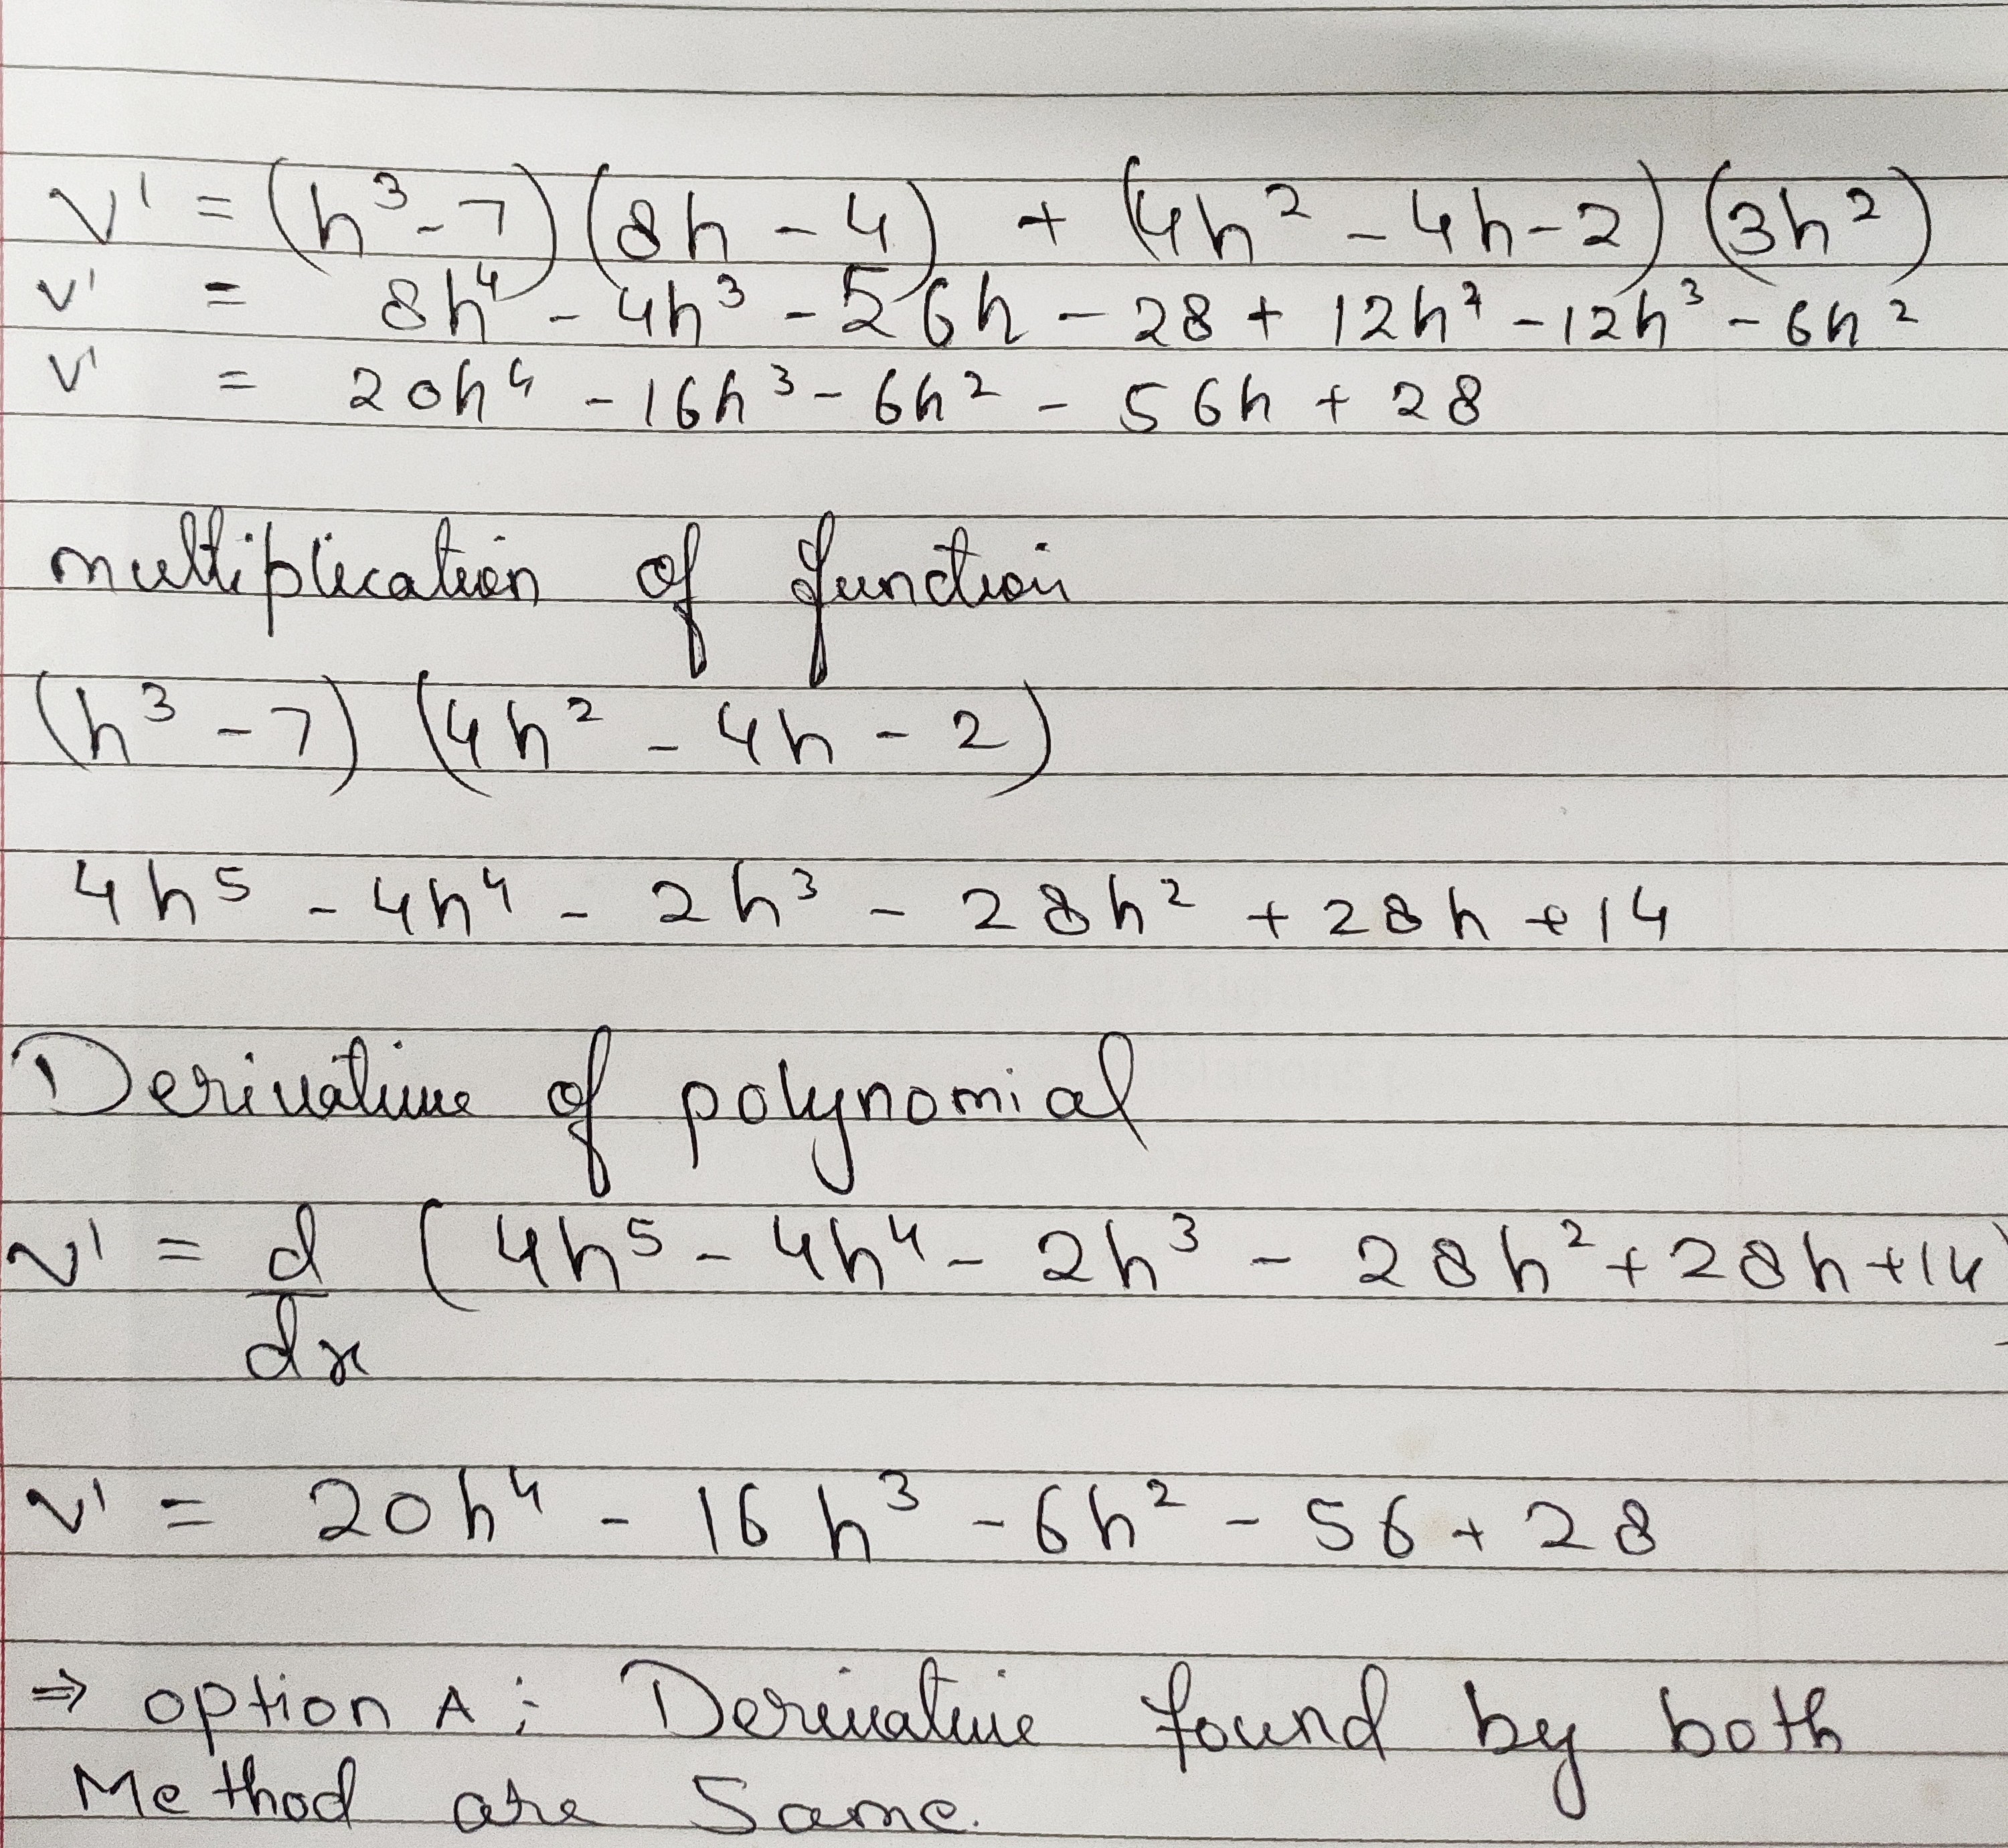 V' = (h³-7)(8h-4) + (4h²-4h-2)(3h²)
V' = 8h⁴ - 4h³ - 56h - 28 + 12h⁴ - 12h³ - 6h²
V' = 20h⁴ - 16h³ - 6h² - 56h + 28
multiplication of function
(h³-7) (4h² - 4h - 2)
4h⁵ - 4h⁴ - 2h³ - 28h² + 28h + 14
Derivative of polynomial
V' = d/dx (4h⁵ - 4h⁴ - 2h³ - 28h² + 28h + 14)
V' = 20h⁴ - 16h³ - 6h² - 56 + 28
⇒ option A : Derivative found by both
Method are Same.